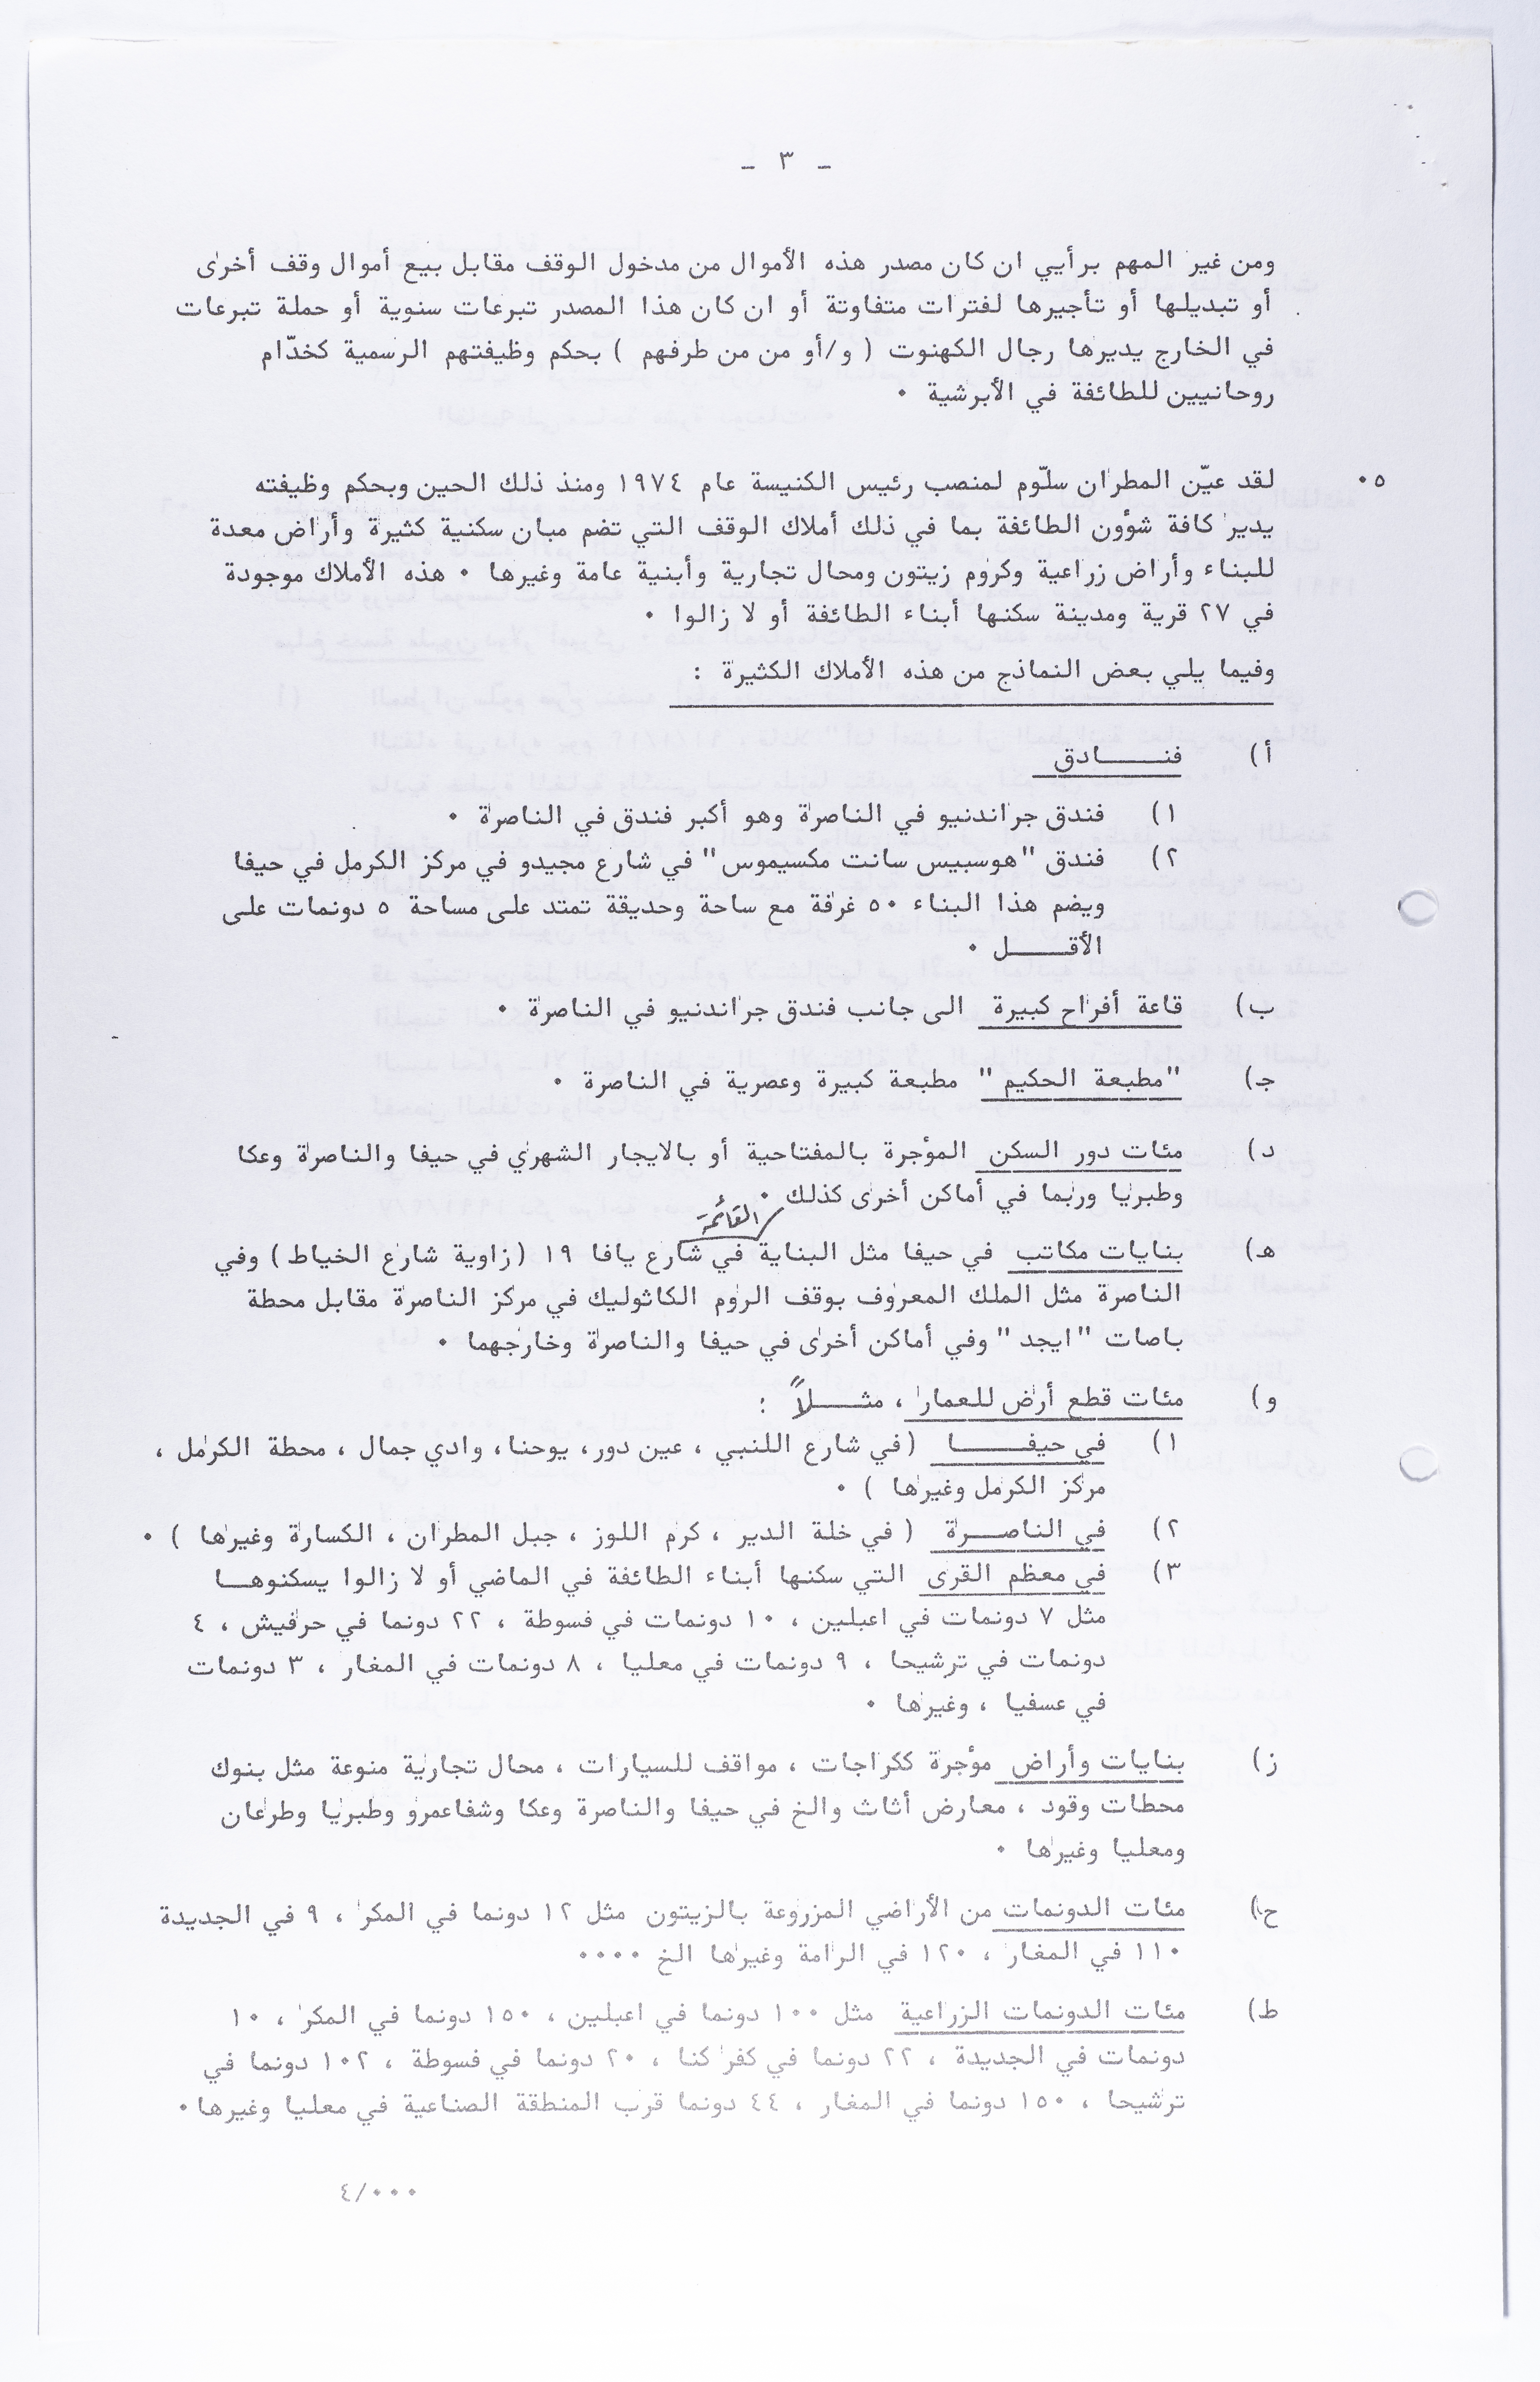 - ٣ -
ومن غير المهم برأيي ان كان مصدر هذه الأموال من مدخول الوقف مقابل بيع أموال وقف أخرى
أو تبديلها أو تأجيرها لفترات متفاوتة أو ان كان هذا المصدر تبرعات سنوية أو حملة تبرعات
في الخارج يديرها رجال الكهنوت ( و/أو من من طرفهم ) بحكم وظيفتهم الرسمية كخدّام
روحانيين للطائفة في الأبرشية ٠
٥٠ لقد عيّن المطران سلّوم لمنصب رئيس الكنيسة عام ١٩٧٤ ومنذ ذلك الحين وبحكم وظيفته
يدير كافة شؤون الطائفة بما في ذلك أملاك الوقف التي تضم مبان سكنية كثيرة وأراض معدة
للبناء وأراض زراعية وكروم زيتون ومحال تجارية وأبنية عامة وغيرها ٠ هذه الأملاك موجودة
في ٢٧ قرية ومدينة سكنها أبناء الطائفة أو لا زالوا ٠
وفيما يلي بعض النماذج من هذه الأملاك الكثيرة :
أ) فنـــــادق
١) فندق جراندنيو في الناصرة وهو أكبر فندق في الناصرة ٠
٢) فندق "هوسبيس سانت مكسيموس" في شارع مجيدو في مركز الكرمل في حيفا
ويضم هذا البناء ٥٠ غرفة مع ساحة وحديقة تمتد على مساحة ٥ دونمات على
الأقـــــل ٠
ب) قاعة أفراح كبيرة الى جانب فندق جراندنيو في الناصرة ٠
جـ) "مطبعة الحكيم" مطبعة كبيرة وعصرية في الناصرة ٠
د) مئات دور السكن المؤجرة بالمفتاحية أو بالايجار الشهري في حيفا والناصرة وعكا
وطبريا وربما في أماكن أخرى كذلك ٠
القائمة
هـ) بنايات مكاتب في حيفا مثل البناية في شارع يافا ١٩ (زاوية شارع الخياط) وفي
الناصرة مثل الملك المعروف بوقف الروم الكاثوليك في مركز الناصرة مقابل محطة
باصات "ايجد" وفي أماكن أخرى في حيفا والناصرة وخارجهما ٠
و) مئات قطع أرض للعمار ، مثـــــلاً :
١) في حيفـــــا (في شارع اللنبي ، عين دور، يوحنا، وادي جمال ، محطة الكرمل ،
مركز الكرمل وغيرها ) ٠
٢) في الناصـــرة ( في خلة الدير ، كرم اللوز ، جبل المطران ، الكسارة وغيرها ) ٠
٣) في معظم القرى التي سكنها أبناء الطائفة في الماضي أو لا زالوا يسكنوهـــا
مثل ٧ دونمات في اعبلين ، ١٠ دونمات في فسوطة ، ٢٢ دونما في حرفيش ، ٤
دونمات في ترشيحا ، ٩ دونمات في معليا ، ٨ دونمات في المغار ، ٣ دونمات
في عسفيا ، وغيرها ٠
ز) بنايات وأراض مؤجرة ككراجات ، مواقف للسيارات ، محال تجارية منوعة مثل بنوك
محطات وقود ، معارض أثاث والخ في حيفا والناصرة وعكا وشفاعمرو وطبريا وطرعان
ومعليا وغيرها ٠
ح) مئات الدونمات من الأراضي المزروعة بالزيتون مثل ١٢ دونما في المكر ، ٩ في الجديدة
١١٠ في المغار ، ١٢٠ في الرامة وغيرها الخ ٠٠٠٠
ط) مئات الدونمات الزراعية مثل ١٠٠ دونما في اعبلين ، ١٥٠ دونما في المكر ، ١٠
دونمات في الجديدة ، ٢٢ دونما في كفر كنا ، ٢٠ دونما في فسوطة ، ١٠٢ دونما في
ترشيحا ، ١٥٠ دونما في المغار ، ٤٤ دونما قرب المنطقة الصناعية في معليا وغيرها٠
٤/٠٠٠